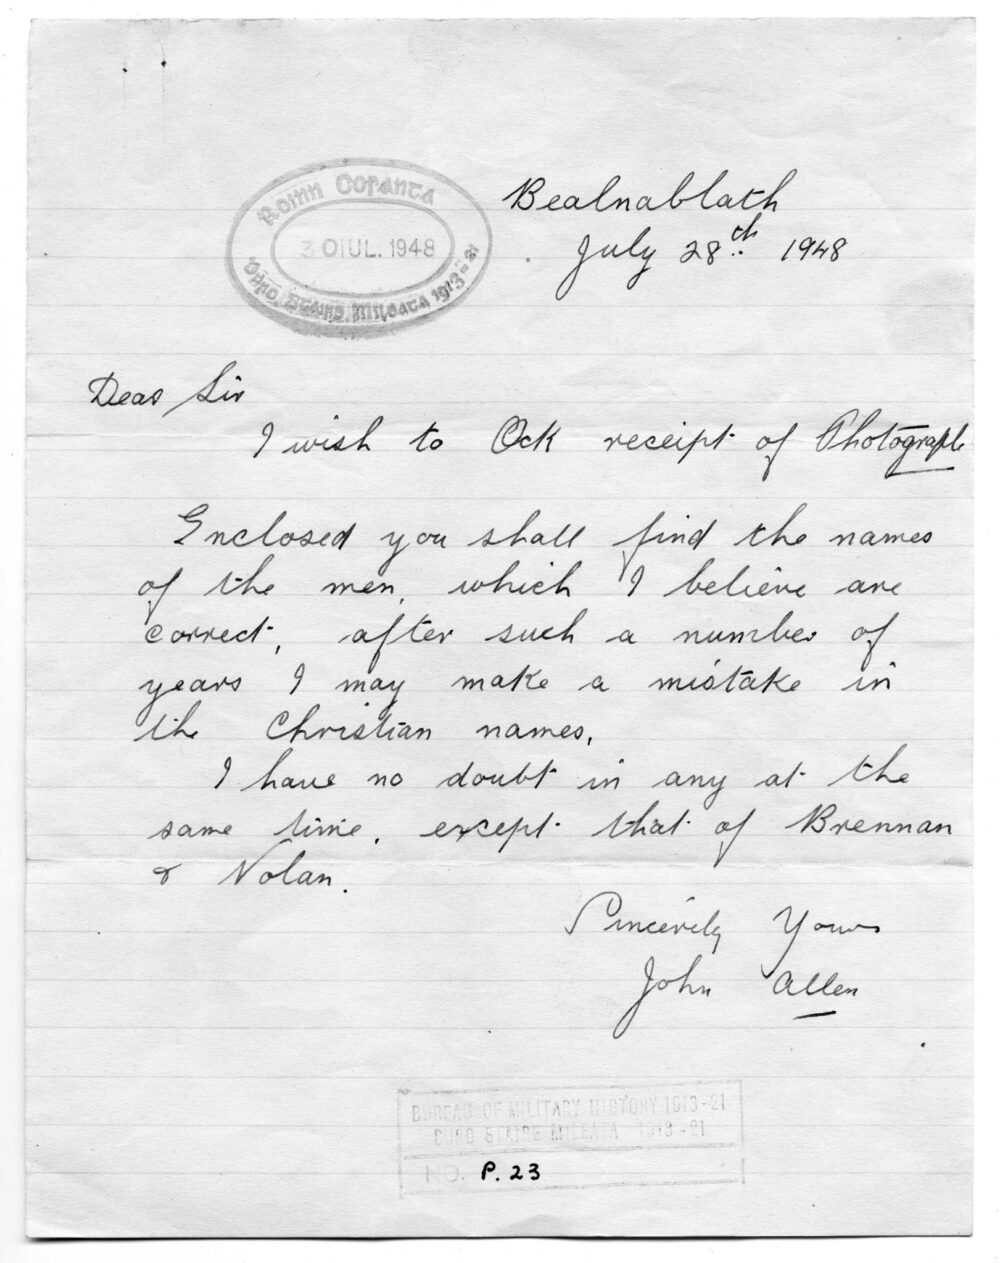 Roinn Cosanta
30 IUL. 1948
Buro Staire Mileata 1913-21
Bealnablath
July 28th 1948
Dear Sir
I wish to Ack receipt of Photograph
Enclosed you shall find the names
of the men, which I believe are
correct, after such a number of
years I may make a mistake in
the Christian names,
I have no doubt in any at the
same time, except that of Brennan
& Nolan.
Sincerely Yours
John Allen
BUREAU OF MILITARY HISTORY 1913-21
BURO STAIRE MILEATA 1913-21
NO. P. 23